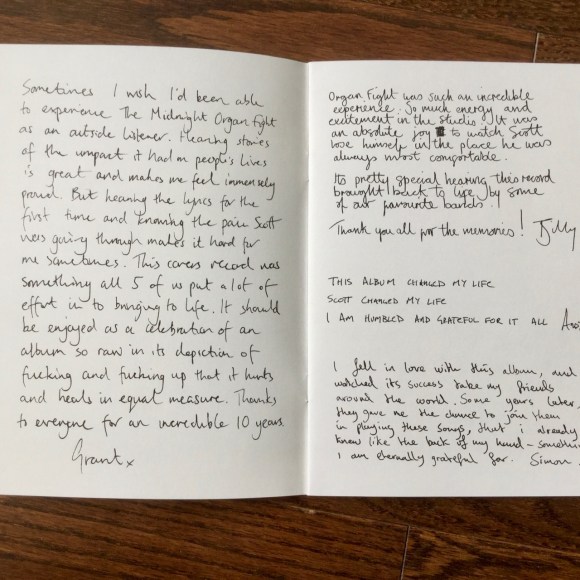 Sometimes I wish I'd been able
to experience The Midnight Organ Fight
as an outside listener. Hearing stories
of the impact it had on people's lives
is great and makes me feel immensely
proud. But hearing the lyrics for the
first time and knowing the pain Scott
was going through makes it hard for
me sometimes. This covers record was
something all 5 of us put a lot of
effort in to bringing to life. It should
be enjoyed as a celebration of an
album so raw in its depiction of
fucking and fucking up that it hurts
and heals in equal measure. Thanks
to everyone for an incredible 10 years.
Grant x
Organ Fight was such an incredible
experience. So much energy and
excitement in the studio. It was
an absolute joy to watch Scott
lose himself in the place he was
always most comfortable.
Its pretty special hearing this record
brought back to life by some
of our favourite bands!
Thank you all for the memories! Billy
THIS ALBUM CHANGED MY LIFE
SCOTT CHANGED MY LIFE
I AM HUMBLED AND GRATEFUL FOR IT ALL
I fell in love with this album, and
watched its success take my friends
around the world. Some years later,
they gave me the chance to join them
in playing these songs, that i already
knew like the back of my hand - somethin
i am eternally grateful for. Simon